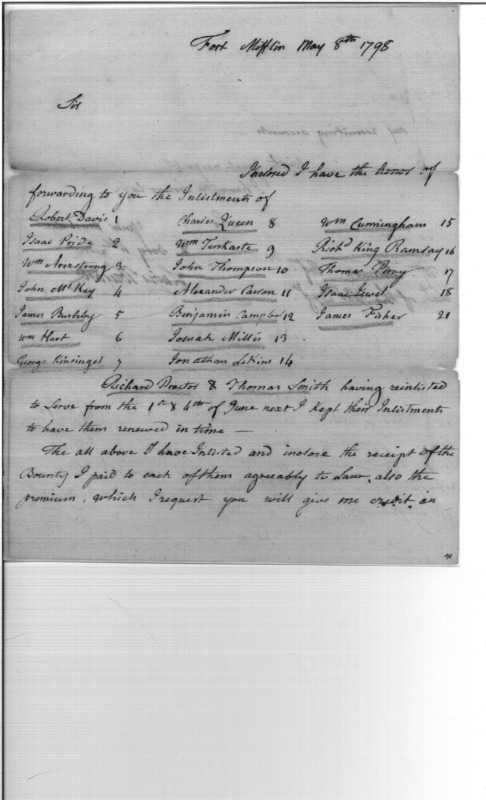 Fort Mifflin May 8th 1798
Sir
Inclosed I have the honor of
forwarding to you the Inlistments of
Robert Davis 1 Charles Queen 8 Wm Cunningham 15
Isaac Pride 2 Wm 9 Richd King Ramsay 16
Wm Armstrong 3 John Thompson 10 Thomas 17
John McKey 4 Alexander Carson 11 Isaac 18
James 5 Benjamin Campbel 12 James Fisher 21
Wm Hart 6 Josuah Millis 13
George Kinsingel 7 Jonathan 14
Richard Proctor & Thomas Smith having reinlisted
to Serve from the 1st & 4th of June next I kept their Inlistments
to have them renewed in time —
The all above I have Inlisted and inclose the receipt of the
Bounty I paid to each of them agreeably to Law, also the
premium, which I request you will give me credit in